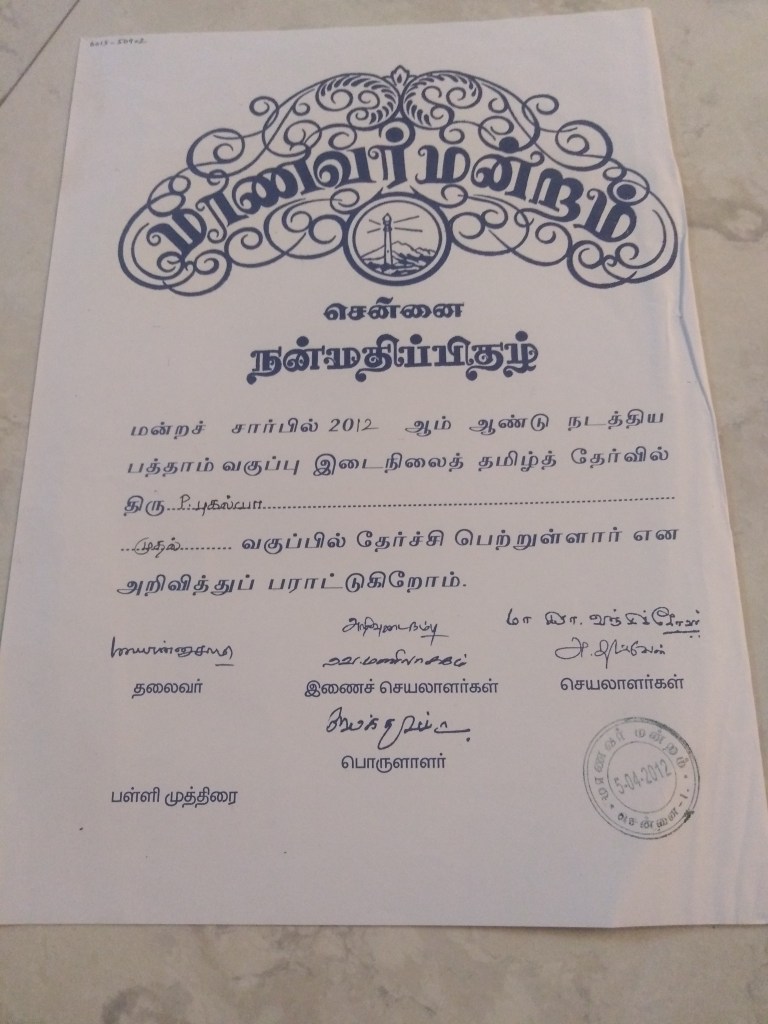 மாணவர் மன்றம்
சென்னை
நன்மதிப்பிதழ்
மன்றச் சார்பில் 2012 ஆம் ஆண்டு நடத்திய
பத்தாம் வகுப்பு இடைநிலைத் தமிழ்த் தேர்வில்
திரு...P. புகல்யா...
...முதல்... வகுப்பில் தேர்ச்சி பெற்றுள்ளார் என
அறிவித்துப் பராட்டுகிறோம்.
அறிவுடைநம்பி
தலைவர் இணைச் செயலாளர்கள் செயலாளர்கள்
பொருளாளர்
பள்ளி முத்திரை
மாணவர் மன்றம்
5-04-2012
சென்னை-1.